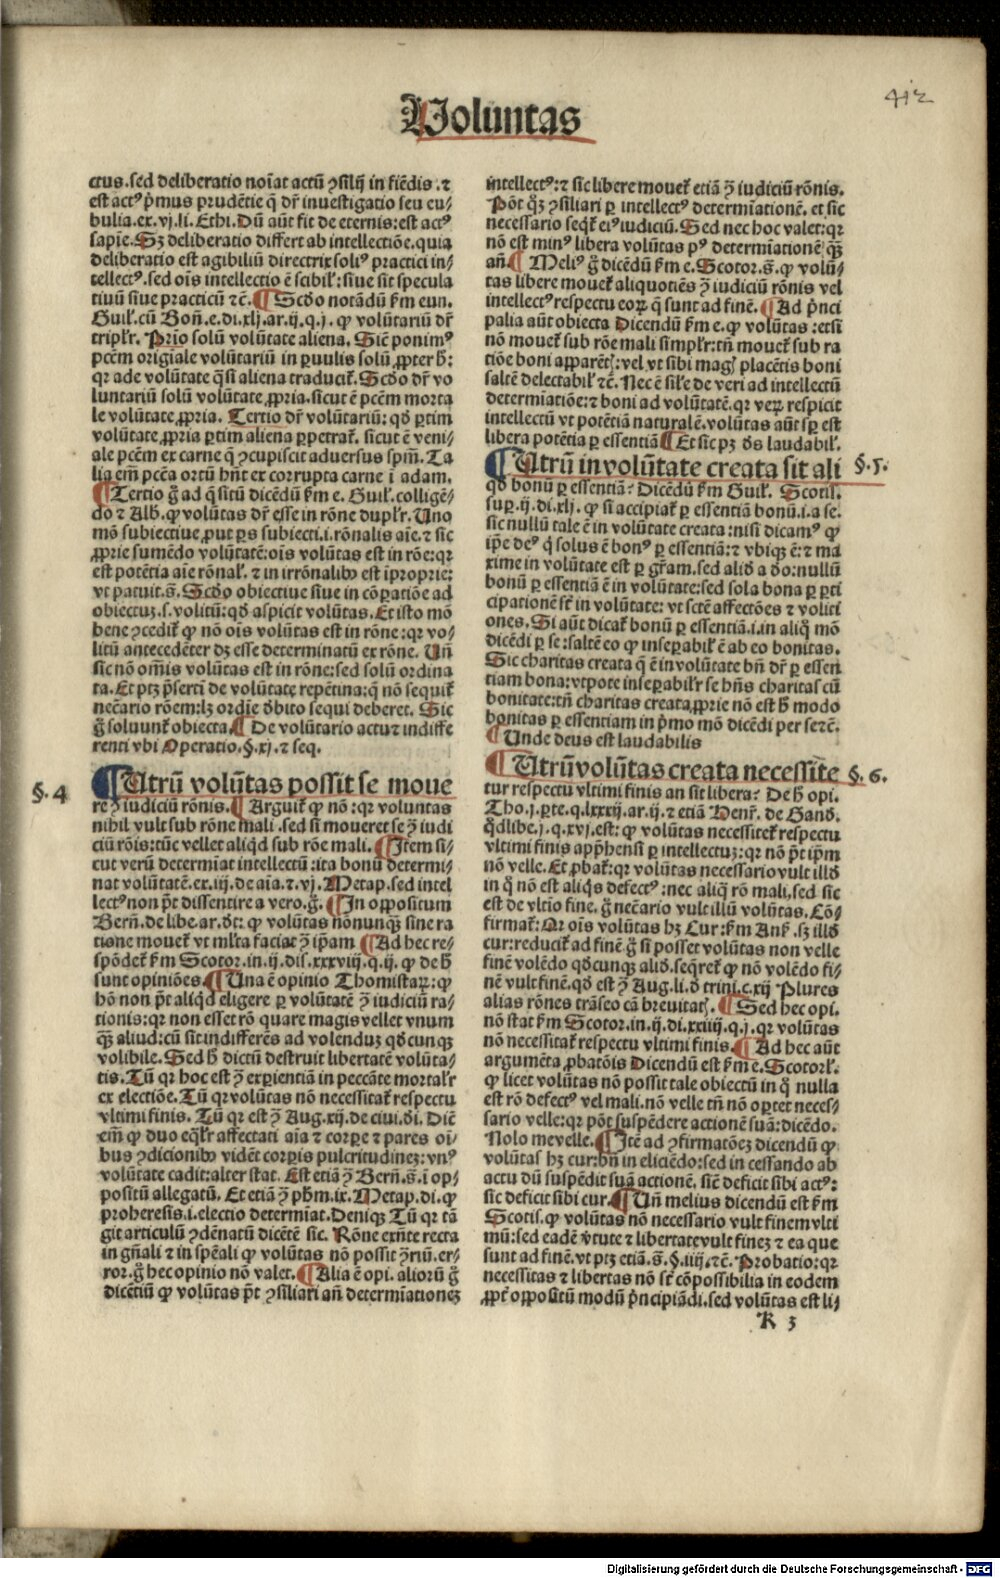 412
Voluntas
ctus.sed deliberatio noīat actū ꝯsilij in fiēdis.⁊
est actꝰ p̄mus prudētie q̄ dr̄ inuestigatio seu eu-
bulia.ex.vj.li. Ethi. Dū aūt fit de eternis:est actꝰ
sapīe. Sꝫ deliberatio differt ab intellectiōe.quia
deliberatio est agibiliū directrix soliꝰ practici in-
tellectꝰ.sed oīs intellectio ē scibilꝭ: siue sit specula
tiuū siue practicū ⁊c̄. ¶ Scd̄o notādū ẜm eun.
Guil.cū Boñ.e.di.xlj.ar.ij.q.j. ꝙ volūtariū dr̄
triplr̄. Prīo solū volūtate aliena. Sic̄ ponimꝰ
pctm̄ origiale volūtariū in ꝑuulis solū ꝓpter h̄:
qr ade volūtate q̄si aliena traducit̄. Scd̄o dr̄ vo
luntariū solū volūtate ꝓpria.sicut ē pctm̄ morta
le volūtate ꝓpria. Tertio dr̄ volūtariū: qd̄ ꝑtim
volūtate ꝓpria ꝑtim aliena ꝑpetrat̄. sicut ē veni-
ale pctm̄ ex carne q̄ ꝯcupiscit aduersus spm̄. Ta
lia em̄ pctā ortū hn̄t ex corrupta carne ī adam.
¶ Tertio g̊ ad q̄situ dicēdū ẜm e. Guil.colligē-
do ⁊ Alb̄. ꝙ volūtas dr̄ esse in rōne duplr̄. Uno
mō subiectiue ꝓut ꝑs subiecti.i.rōnalis aīe.⁊ sic
ꝓprie sumēdo volūtatē:oīs volūtas est in rōe:qr
est potētia aīe rōnal. ⁊ in irrōnalibꝰ est īproprie:
vt patuit.s̄. Scd̄o obiectiue siue in cōꝑatiōe ad
obiectuꝫ.s.volitū: qd̄ aspicit volūtas. Et isto mō
bene ꝯcedit̄ ꝙ nō oīs volūtas est in rōne:qr vo-
litū antecedēter dꝫ esse determinatū ex rōne. Uñ
sic nō om̄is volūtas est in rōne:sed solū ordina
ta. Et ptꝫ p̄sertī de volūtate repētina: q̄ nō sequit̄
necc̄ario rōem:lꝫ ordīe d̄bito sequi deberet. Sic
g̊ soluunt̄ obiecta. ¶ De volūtario actu ⁊ indiffe
renti vbi Operatio.§.xj.⁊ seq.
§.4
¶ Utrū volūtas possit se moue
re ꝯ̄ iudiciū rōnis. ¶ Arguit̄ ꝙ nō : qr voluntas
nihil vult sub rōne mali .sed si moueret se ꝯ̄ iudi
ciū rōis:tūc vellet aliqd̄ sub rōe mali. ¶ Item si-
cut verū determīat intellectū:ita bonū determi-
nat volūtatē.ex.iij.de aīa.⁊.vj. Metap.sed intel
lectꝰ non pōt dissentire a vero.g̊. ¶ In oppositum
Berñ.de libe.ar.d̄t: ꝙ volūtas nōnunqꝫ sine ra
tione mouet̄ vt ml̄ta faciat ꝯ̄ ip̄am ¶ Ad hec re-
spōdet̄ ẜm Scotor.in.ij.dis.xxxviij.q.ij. ꝙ de h̄
sunt opiniōes. ¶ Una ē opinio Thomistaꝝ: ꝙ
hō non pōt aliqd̄ eligere ꝑ volūtatē ꝯ̄ iudiciū ra-
tionis:qr non esset rō quare magis vellet vnum
qꝫ aliud:cū sit indifferēs ad volenduꝫ qd̄cunqꝫ
volibile. Sed h̄ dictū destruit libertatē volūta-
tis. Tū qr hoc est ꝯ̄ experientiā in peccāte mortalr̄
ex electiōe. Tū qr volūtas nō necessitat̄ respectu
vltimi finis. Tū qr est ꝯ̄ Aug.xij.de ciui.d̄i. Dic̄
em̄ ꝙ duo eq̄lr̄ affectati aīa ⁊ corꝑe ⁊ pares oī-
bus ꝯdicionibꝰ vidēt corꝑis pulcritudineꝫ: vnꝰ
volūtate cadit:alter stat. Est etiā ꝯ̄ Berñ.s̄.ī op-
positū allegatū. Et etiā ꝯ̄ phm̄.ix. Metap.di. ꝙ
proheresis.i.electio determīat. Deniqꝫ Tū qr tā
git articulū ꝯdēnatū dicētē sic. Rōne exn̄te recta
in gn̄ali ⁊ in spēali ꝙ volūtas nō possit ꝯ̄riū.er-
ror.g̊ hec opinio nō valet. ¶ Alia ē opi. aliorū g̊
dicētiū ꝙ volūtas pōt ꝯsiliari añ determīationeꝫ
intellectꝰ:⁊ sic libere mouet̄ etiā ꝯ̄ iudiciū rōnis.
Pōt qꝫ ꝯsiliari ꝑ intellectꝰ determīationē. et sic
necessario seqt̄ eiꝰ iudiciū. Sed nec hoc valet:qr
nō est minꝰ libera volūtas pꝰ determīationē qꝫ
añ. ¶ Meliꝰ g̊ dicēdū ẜm e. Scotor.s̄. ꝙ volū-
tas libere mouet̄ aliquotiēs ꝯ̄ iudiciū rōnis vel
intellectꝰ respectu eoꝝ q̄ sunt ad finē. ¶ Ad p̄nci
palia aūt obiecta Dicendū ẜm e. ꝙ volūtas :etsi
nō mouet̄ sub rōe mali simplr̄:tn̄ mouet̄ sub ra
tiōe boni apparētꝭ: vel vt sibi magꝭ placētis boni
saltē delectabilꝭ ⁊c̄. Nec ē sile de veri ad intellectū
determīatiōe:⁊ boni ad volūtatē.qr veꝝ respicit
intellectū vt potētiā naturalē.volūtas aūt sꝑ est
libera potētia ꝑ essentiā ¶ Et sic pꝫ d̄s laudabilꝭ.
§.5.
¶ Utrū in volūtate creata sit ali
qd̄ bonū ꝑ essentiā? Dicēdū ẜm Guil. Scotis.
suꝑ.ij.di.xlj. ꝙ si accipiat̄ ꝑ essentiā bonū.i.a se:
sic nullū tale ē in volūtate creata: nisi dicamꝰ ꝙ
ip̄e deꝰ q̄ solus ē bonꝰ ꝑ essentiā:⁊ vbiqꝫ ē:⁊ ma
xime in volūtate est ꝑ gr̄am.sed aliud a d̄o:nullū
bonū ꝑ essentiā ē in volūtate:sed sola bona ꝑ ꝑti
cipationē st̄ in volūtate: vt sctē affectōes ⁊ voliti
ones. Si aūt dicat̄ bonū ꝑ essentiā.i.in aliq̄ mō
dicēdi ꝑ se:saltē eo ꝙ inseꝑabilꝭ ē ab eo bonitas.
Sic charitas creata q̄ ē in volūtate bn̄ dr̄ ꝑ essen
tiam bona:vtpote inseꝑabilr̄ se hn̄s charitas cū
bonitate:tn̄ charitas creata ꝓprie nō est h̄ modo
bonitas ꝑ essentiam in p̄mo mō dicēdi per se⁊c̄.
¶ Unde deus est laudabilis
§.6.
¶ Utrū volūtas creata necessite
tur respectu vltimi finis an sit libera? De h̄ opi.
Tho.j.ꝑte.q.lxxxij.ar.ij.⁊ etiā Henr̄. de Gand̄.
qd̄libe.j.q.xvj.est: ꝙ volūtas necessitet̄ respectu
vltimi finis app̄hensi ꝑ intellectuꝫ:qr nō pōt ip̄m
nō velle. Et ꝓbat̄: qr volūtas necessario vult illd̄
in q̄ nō est aliqs defectꝰ:nec aliq̄ rō mali.sed sic
est de vltīo fine. g̊ necc̄ario vult illū volūtas. Cō-
firmat̄: Qr oīs volūtas hꝫ Cur: ẜm Anẜ. sꝫ illd̄
cur:reducit̄ ad finē g̊ si posset volūtas non velle
finē volēdo qd̄cunqꝫ aliud.seq̄ret̄ ꝙ nō volēdo fi-
nē vult finē.qd̄ est ꝯ̄ Aug.li.d̄ trini.c.xij Plures
alias rōnes trāseo cā breuitatꝭ. ¶ Sed hec opi.
nō stat ẜm Scotor.in.ij.di.xxiiij.q.j.qr volūtas
nō necessitat̄ respectu vltimi finis. ¶ Ad hec aūt
argumēta ꝓbatōis Dicendū est ẜm e. Scotorꝭ.
ꝙ licet volūtas nō possit tale obiectū in q̄ nulla
est rō defectꝰ vel mali.nō velle tn̄ nō oꝑtet neces-
sario velle:qr pōt suspēdere actionē suā:dicēdo.
Nolo me velle. ¶ Itē ad ꝯfirmatōeꝫ dicendū ꝙ
volūtas hꝫ cur:bn̄ in eliciēdo:sed in cessando ab
actu dū suspēdit suā actionē. sic̄ deficit sibi actꝰ:
sic deficit sibi cur. ¶ Uñ melius dicendū est ẜm
Scotis. ꝙ volūtas nō necessario vult finem vlti
mū:sed eadē v̄tute ⁊ libertate vult fineꝫ ⁊ ea que
sunt ad finē.vt ptꝫ etiā.s̄.§.iiij.⁊c̄. Probatio:qr
necessitas ⁊ libertas nō st̄ cōpossibilia in eodem
ꝓpt̄ oppositū modū p̄ncipiādi.sed volūtas est li-
K 3
Digitalisierung gefördert durch die Deutsche Forschungsgemeinschaft - DFG